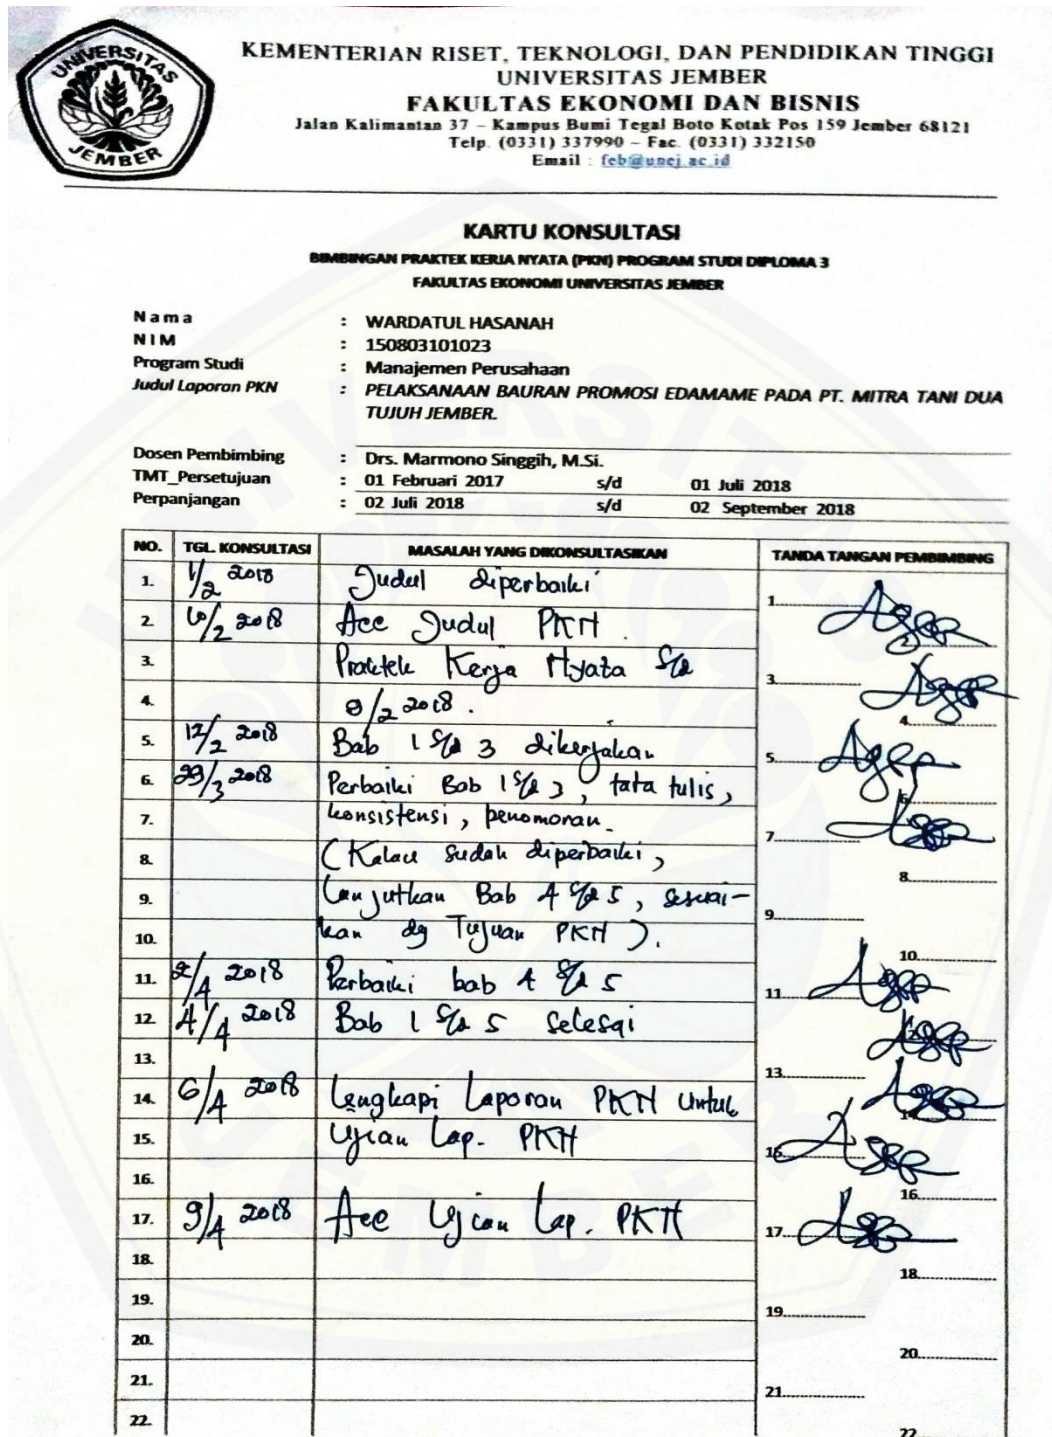 UNIVERSITAS JEMBER
KEMENTERIAN RISET, TEKNOLOGI, DAN PENDIDIKAN TINGGI
UNIVERSITAS JEMBER
FAKULTAS EKONOMI DAN BISNIS
Jalan Kalimantan 37 – Kampus Bumi Tegal Boto Kotak Pos 159 Jember 68121
Telp. (0331) 337990 – Fac. (0331) 332150
Email : feb@unej.ac.id
KARTU KONSULTASI
BIMBINGAN PRAKTEK KERJA NYATA (PKN) PROGRAM STUDI DIPLOMA 3
FAKULTAS EKONOMI UNIVERSITAS JEMBER
Nama : WARDATUL HASANAH
NIM : 150803101023
Program Studi : Manajemen Perusahaan
Judul Laporan PKN : PELAKSANAAN BAURAN PROMOSI EDAMAME PADA PT. MITRA TANI DUA
TUJUH JEMBER.
Dosen Pembimbing : Drs. Marmono Singgih, M.Si.
TMT_Persetujuan : 01 Februari 2017 s/d 01 Juli 2018
Perpanjangan : 02 Juli 2018 s/d 02 September 2018
NO. TGL. KONSULTASI MASALAH YANG DIKONSULTASIKAN TANDA TANGAN PEMBIMBING
1. 1/2 2018 Judul diperbaiki 1.
2. /2 2018 Acc Judul PKN. 2.
3. Praktek Kerja Nyata s/d 3.
4. 8/2 2018. 4.
5. 12/2 2018 Bab 1 s/d 3 dikerjakan 5.
6. 29/3 2018 Perbaiki Bab 1 s/d 3, tata tulis, 6.
7. konsistensi, penomoran. 7.
8. (Kalau sudah diperbaiki, 8.
9. Lanjutkan Bab 4 s/d 5, sesuai- 9.
10. kan dg Tujuan PKN). 10.
11. 2/4 2018 Perbaiki bab 4 s/d 5 11.
12. 4/4 2018 Bab 1 s/d 5 selesai 12.
13. 13.
14. 6/4 2018 Lengkapi Laporan PKN untuk 14.
15. Ujian Lap. PKN 15.
16. 16.
17. 9/4 2018 Acc Ujian Lap. PKN 17.
18. 18.
19. 19.
20. 20.
21. 21.
22. 22.